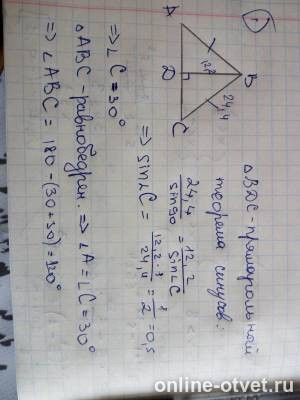 1
A
B
C
D
12,2
24,4
△BDC - прямоугольной
теорема синусов:
24,4/sin90 = 12,2/sin∠C
=> sin∠C = 12,2·1/24,4 = 1/2 = 0,5
=> ∠C = 30°
△ABC - равнобедрен. => ∠A = ∠C = 30°
=> ∠ABC = 180 - (30+30) = 120°
online-otvet.ru